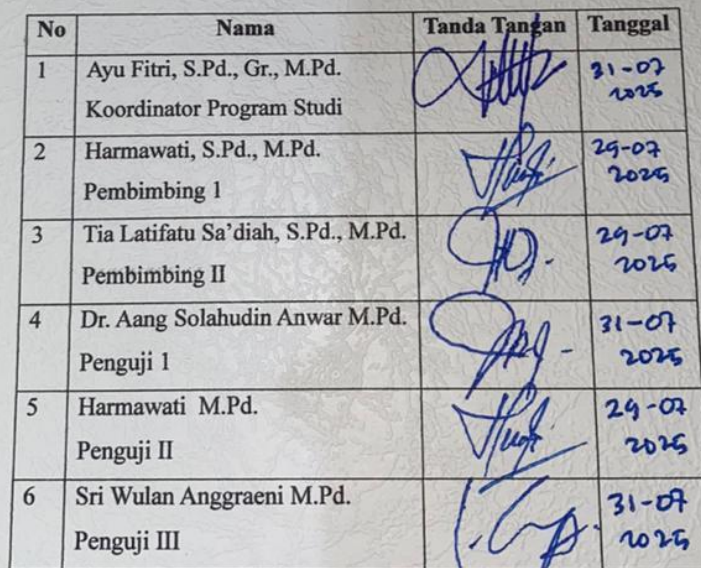 No Nama Tanda Tangan Tanggal
1 Ayu Fitri, S.Pd., Gr., M.Pd. 31-07
Koordinator Program Studi 2025
2 Harmawati, S.Pd., M.Pd. 29-07
Pembimbing 1 2025
3 Tia Latifatu Sa’diah, S.Pd., M.Pd. 29-07
Pembimbing II 2025
4 Dr. Aang Solahudin Anwar M.Pd. 31-07
Penguji 1 2025
5 Harmawati M.Pd. 29-07
Penguji II 2025
6 Sri Wulan Anggraeni M.Pd. 31-07
Penguji III 2025